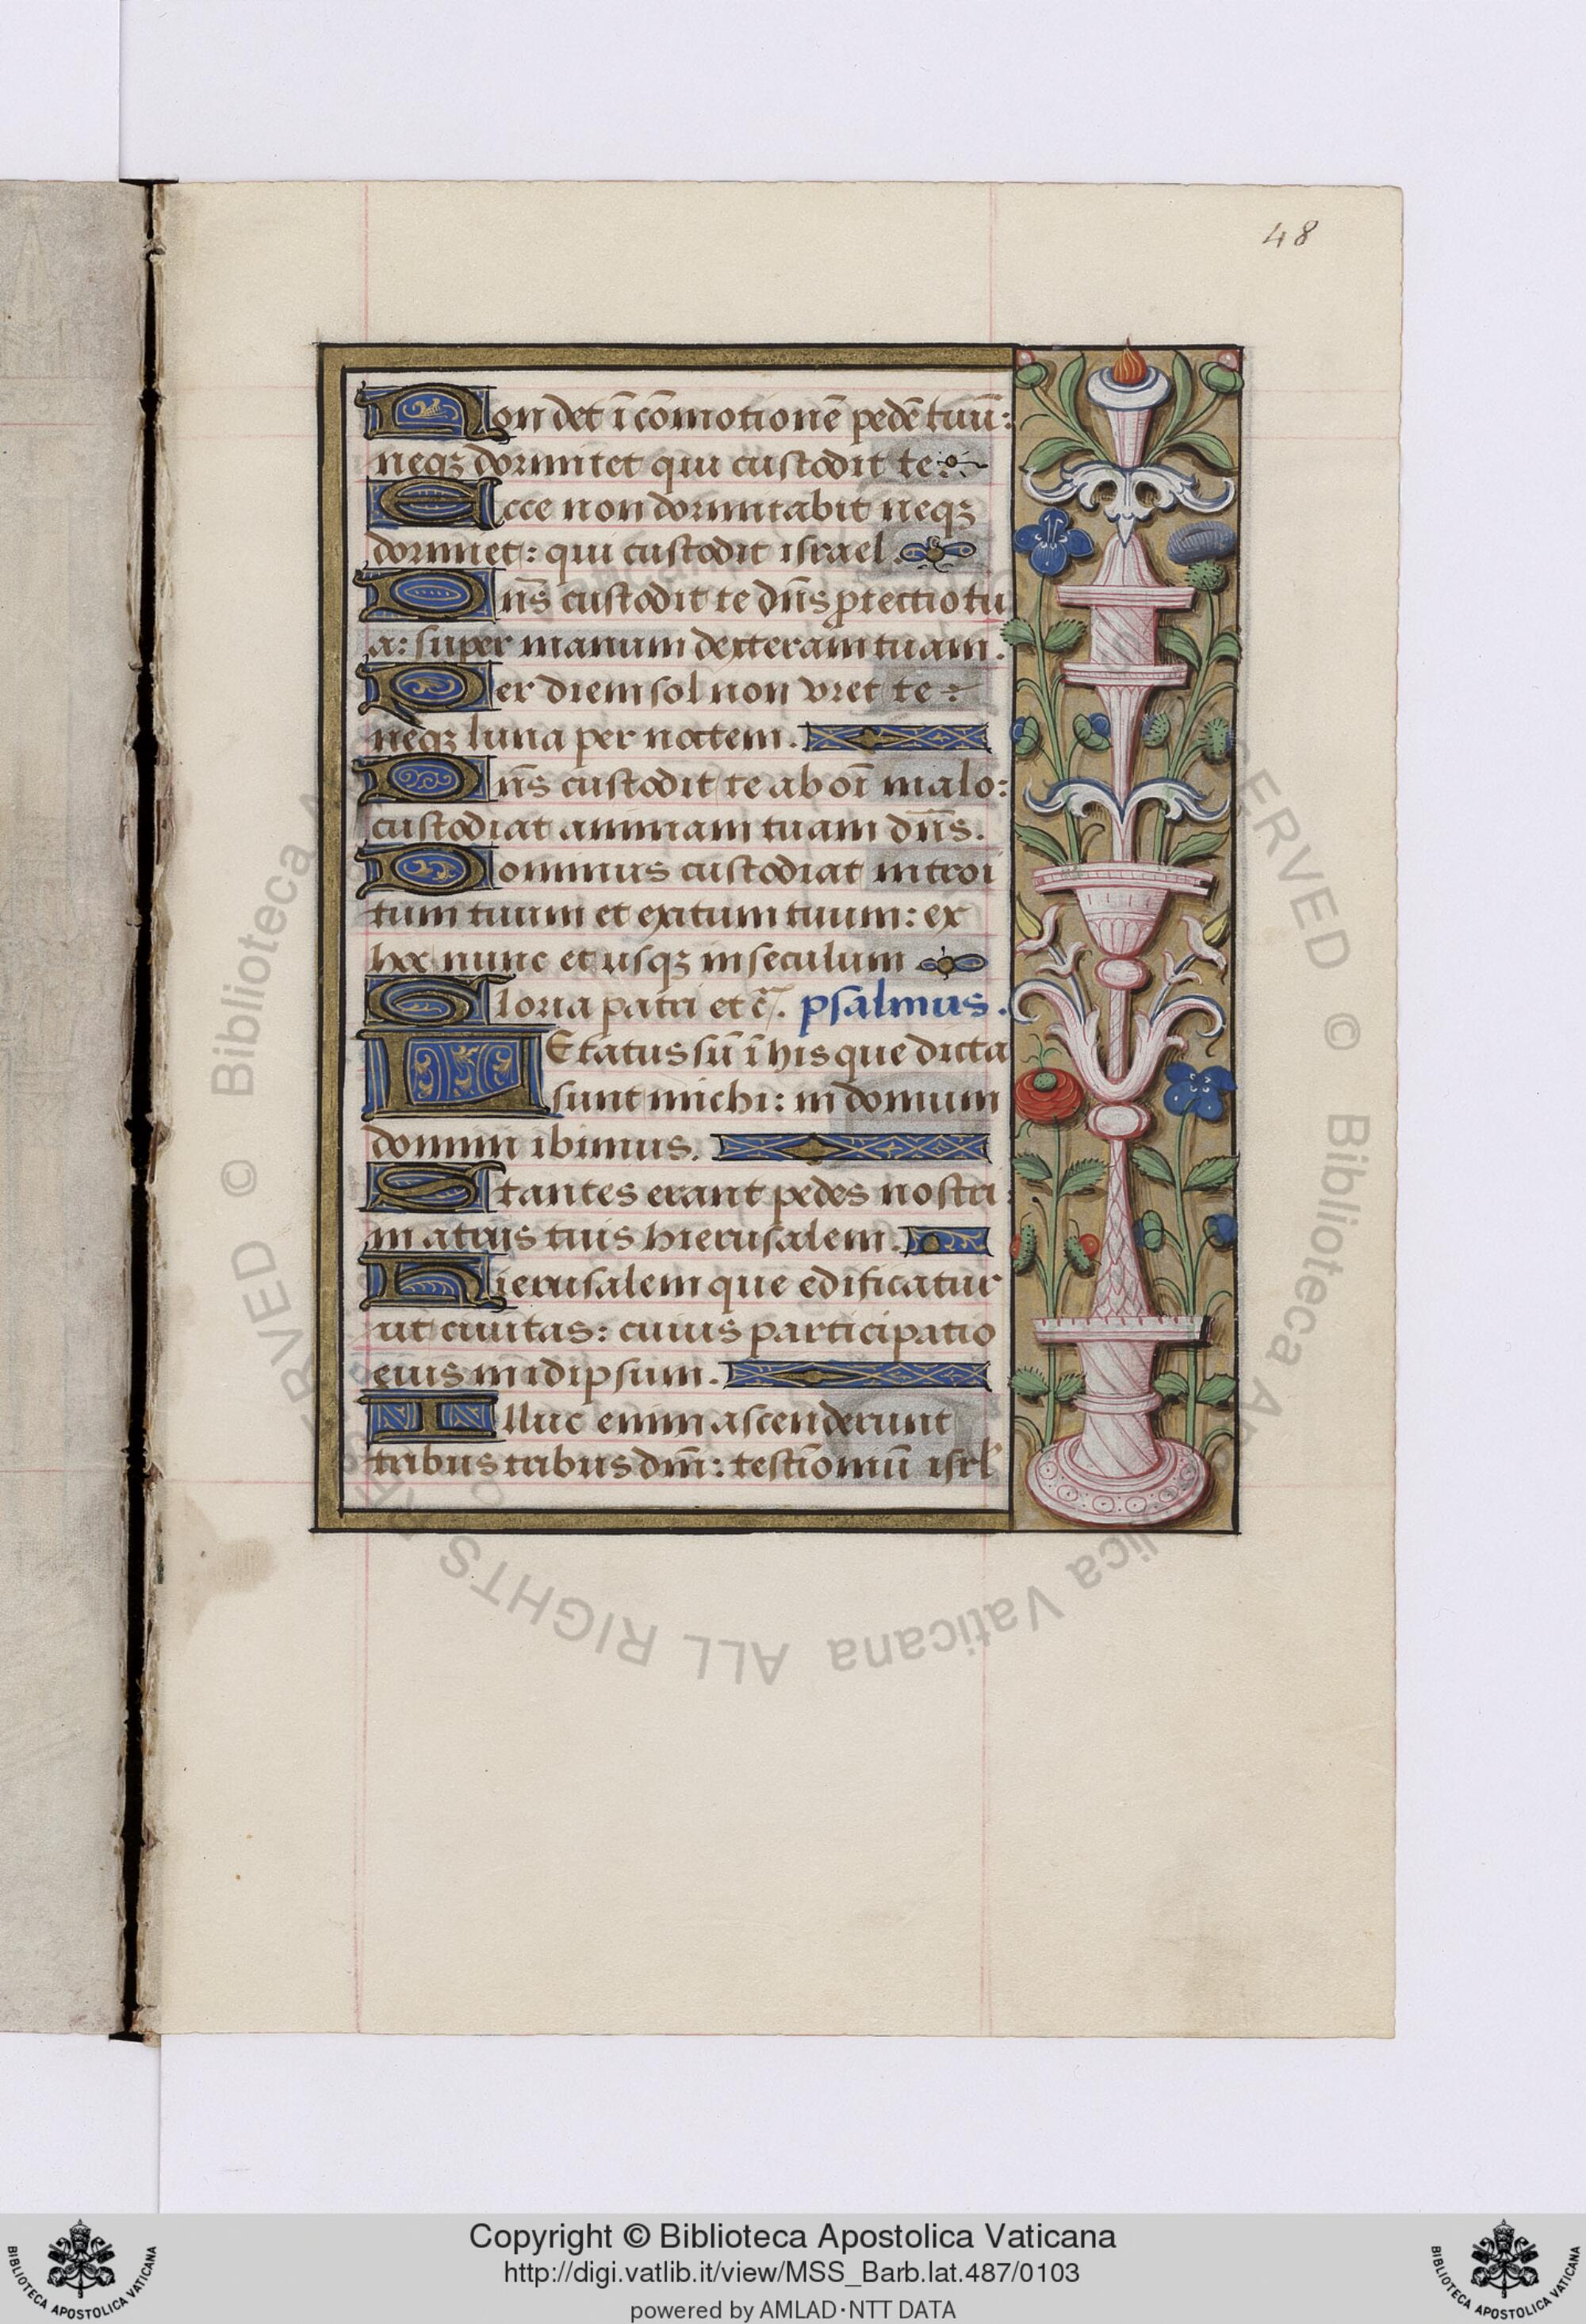 48
Non det ī cōmotionē pedē tuū:
neqꝫ dormitet qui custodit te:
Ecce non dormitabit neqꝫ
dormiet: qui custodit israel.
Dn̄s custodit te dn̄s ꝓtectio tu
a: super manum dexteram tuam.
Per diem sol non vret te:
neqꝫ luna per noctem.
Dn̄s custodit te ab oī malo:
custodiat animam tuam dn̄s.
Dominus custodiat introi
tum tuum et exitum tuum: ex
hoc nunc et usqꝫ in seculum
Gloria patri et c̄. psalmus.
LEtatus sū ī his que dicta
sunt michi: in domum
domini ibimus.
Stantes erant pedes nostri:
in atriis tuis hierusalem.
Hierusalem que edificatur
ut ciuitas: cuius participatio
eius in idipsum.
Illuc enim ascenderunt
tribus tribus dn̄i: testīoniū isrl̓
Copyright © Biblioteca Apostolica Vaticana
http://digi.vatlib.it/view/MSS_Barb.lat.487/0103
powered by AMLAD·NTT DATA
BIBLIOTECA APOSTOLICA VATICANA
BIBLIOTECA APOSTOLICA VATICANA
© Biblioteca Apostolica Vaticana ALL RIGHTS RESERVED